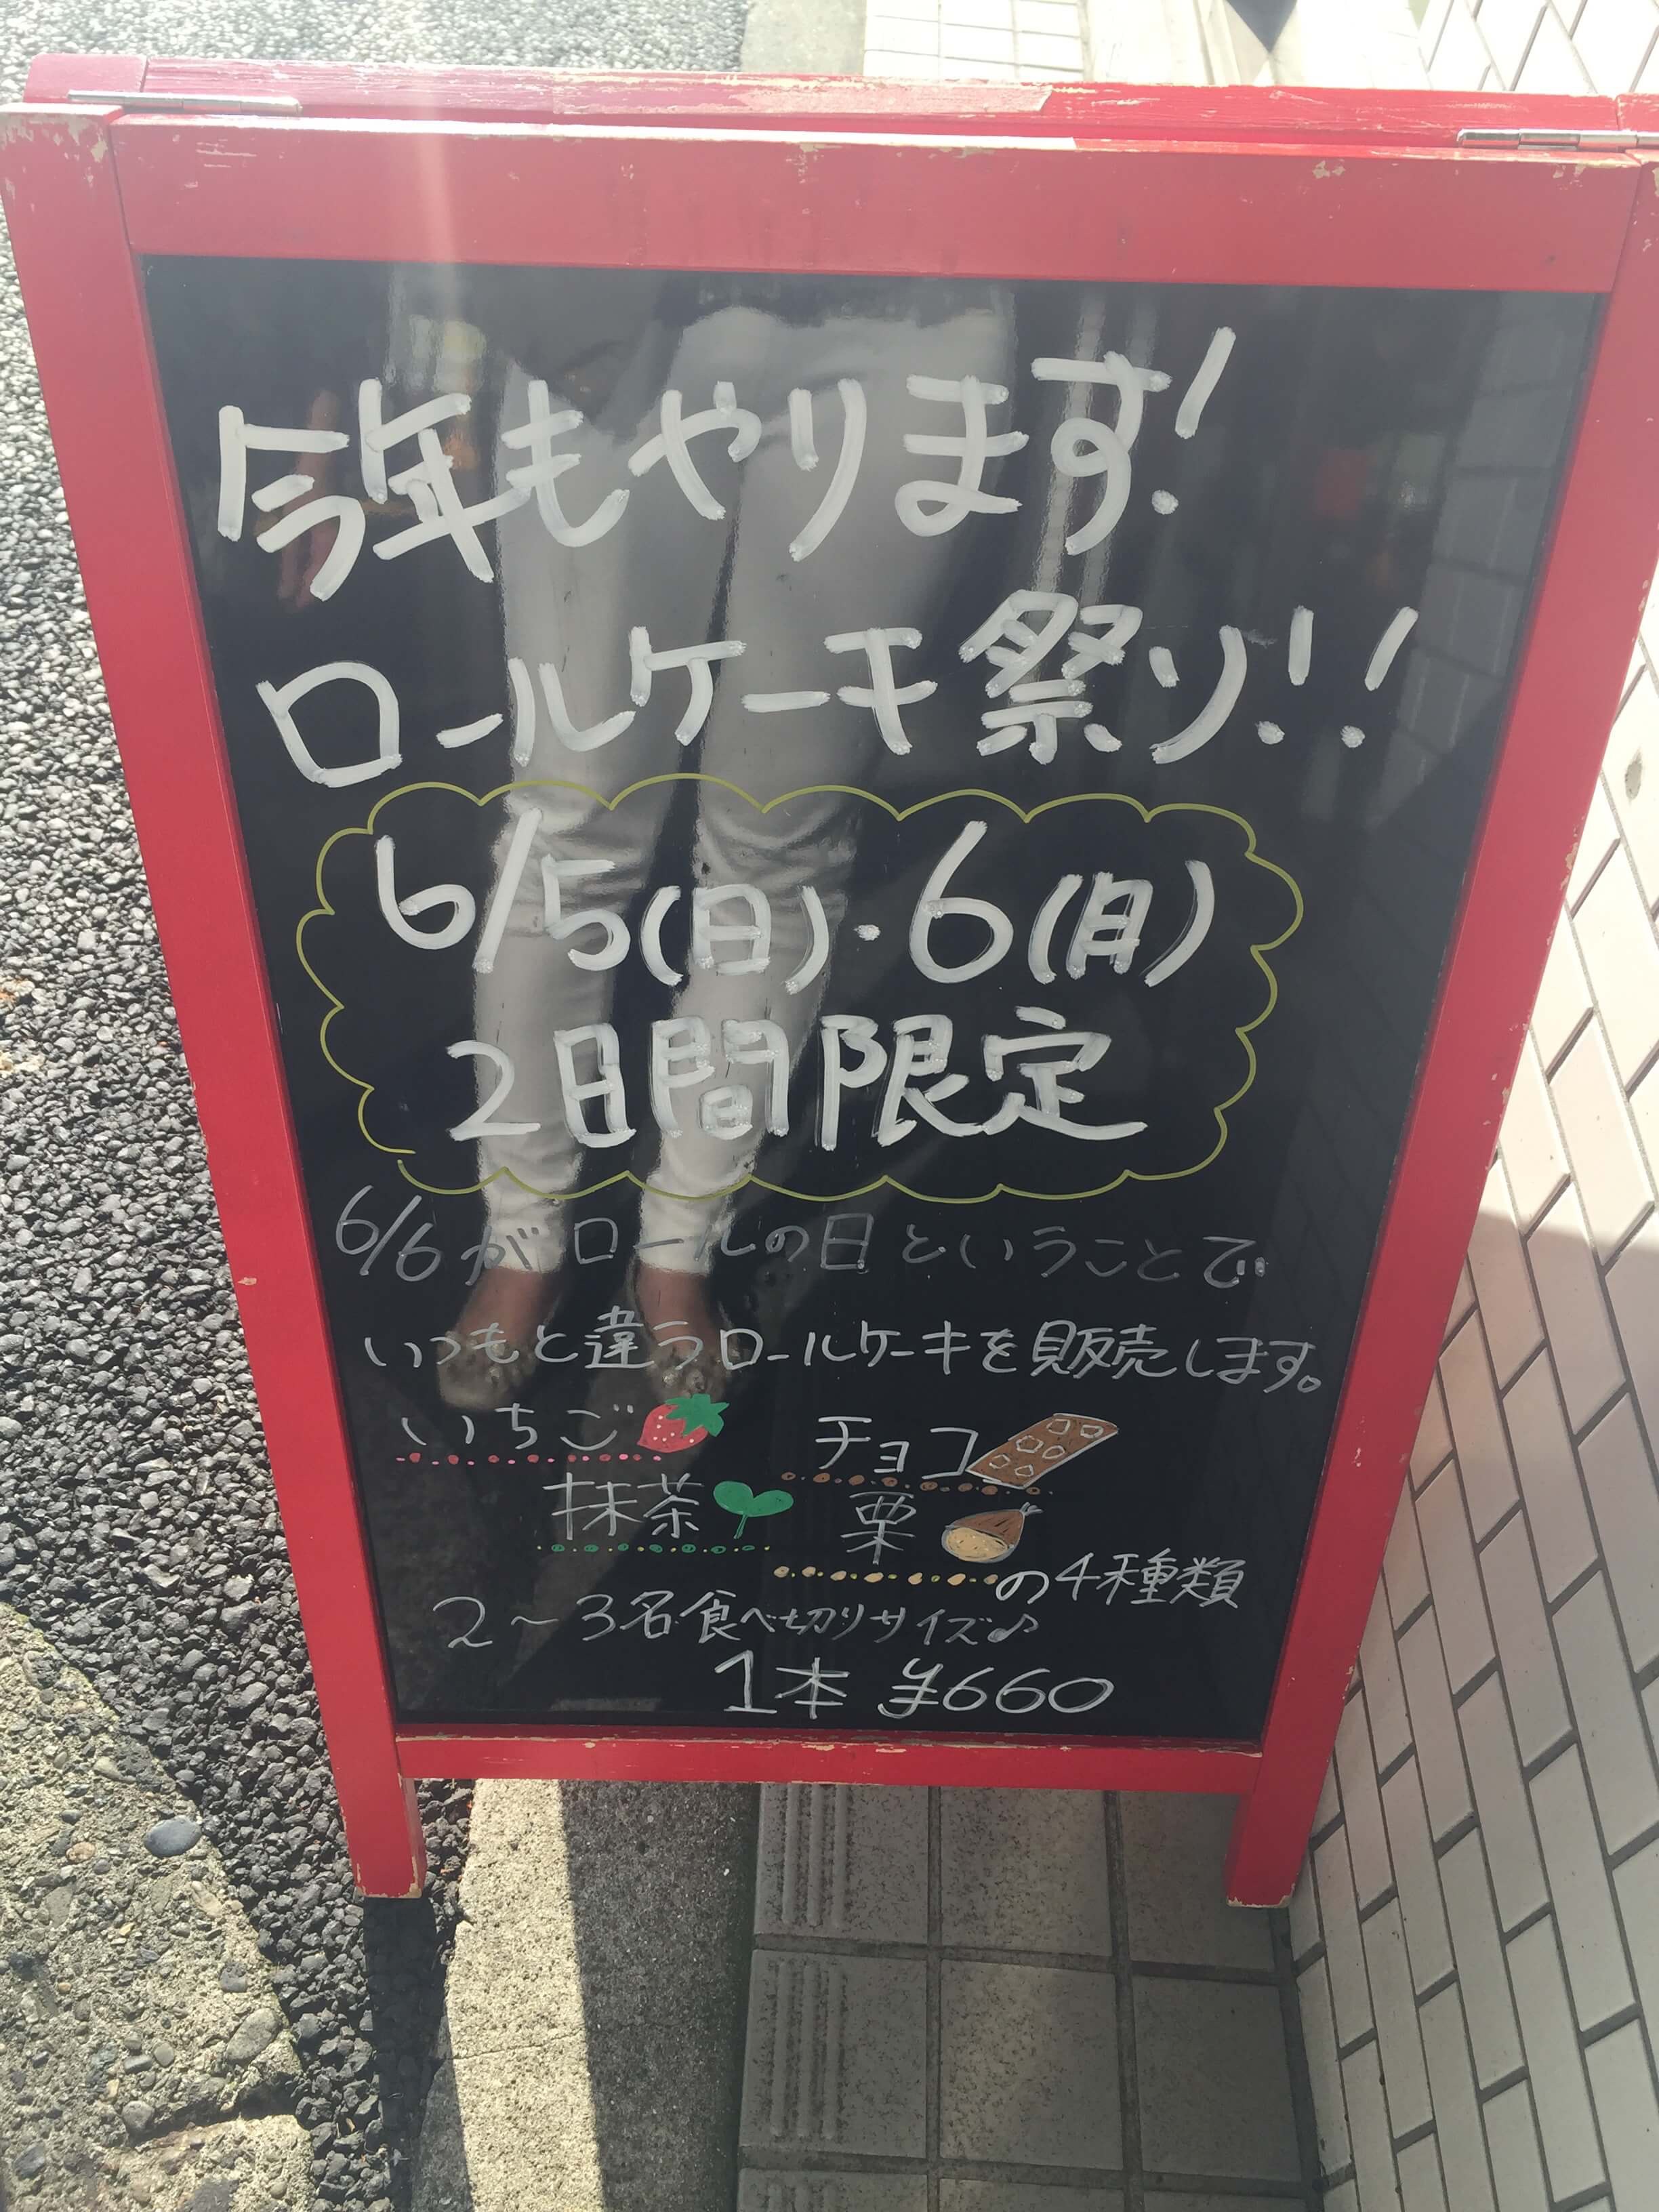 今年もやります!
ロールケーキ祭り!!
6/5(日)・6(月)
2日間限定
6/6がロールの日ということで
いつもと違うロールケーキを販売します。
いちご チョコ
抹茶 栗
の4種類
2〜3名食べ切りサイズ♪
1本 ¥660